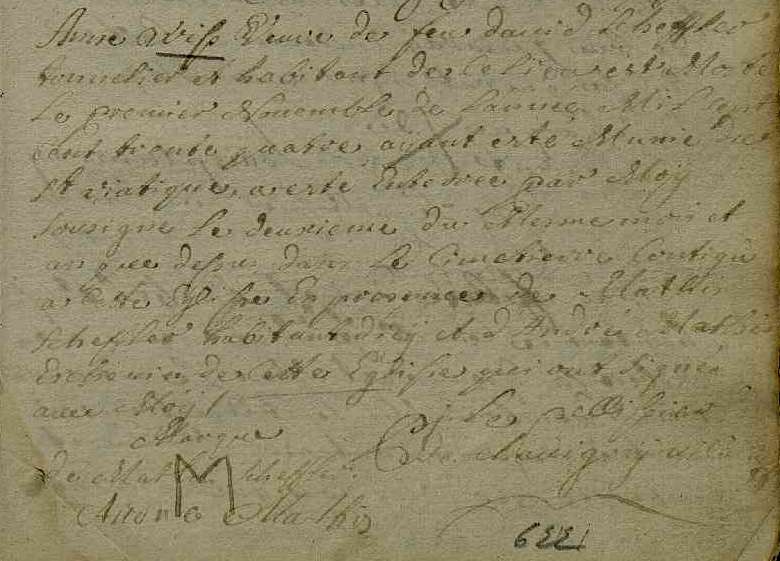 Anne Wiss Veuve de feu david Scheffler
tonnelier et habitant de ce lieu est Morte
Le premier Novembre de L'année Mil sept
cent trente quatre ayant esté Munie du
st viatique, a esté Enterrée par Moy
sousigné Le deuxieme du Mesme mois et
an que dessus dans Le Cimetierre Contigu
a Cette Eglisse En presence de Mathis
scheffler habitant d'icy et d'André Mathis
Eschevin de Cette Eglisse qui ont signé
avec Moy
Marque
de M scheffler
Mathis
6221